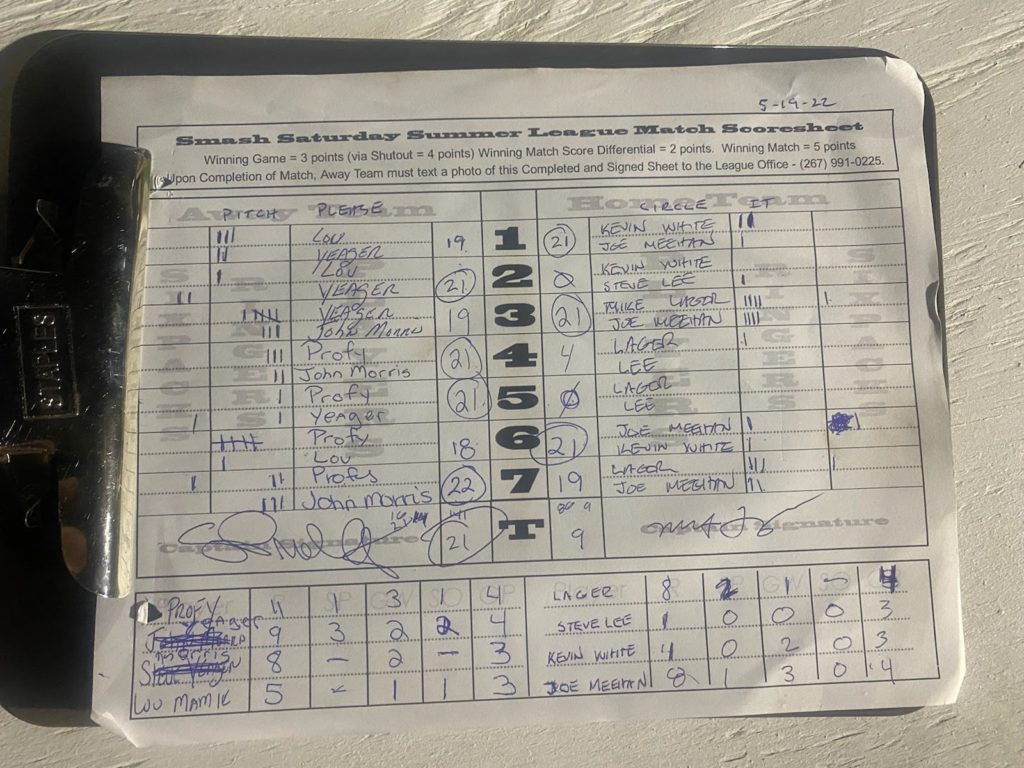 5-19-22
Smash Saturday Summer League Match Scoresheet
Winning Game = 3 points (via Shutout = 4 points) Winning Match Score Differential = 2 points. Winning Match = 5 points
Upon Completion of Match, Away Team must text a photo of this Completed and Signed Sheet to the League Office - (267) 991-0225.
Away Team PITCH PLEASE Home Team CIRCLE IT
LOU 19 1 21 KEVIN WHITE
YEAGER JOE MEEHAN
LOU 21 2 0 KEVIN WHITE
YEAGER STEVE LEE
YEAGER 19 3 21 MIKE LAGER
John Morris JOE MEEHAN
Profy 21 4 4 LAGER
John Morris LEE
Profy 21 5 0 LAGER
Yeager LEE
Profy 18 6 21 JOE MEEHAN
LOU KEVIN WHITE
Profy 22 7 19 LAGER
John Morris JOE MEEHAN
Captain Signature 21 T 9 Captain Signature
PROFY 4 1 3 1 4 LAGER 8 2 1 - 4
YEAGER 9 3 2 2 4 STEVE LEE 1 0 0 0 3
Morris 8 - 2 - 3 KEVIN WHITE 4 0 2 0 3
LOU MAMIE 5 - 1 1 3 JOE MEEHAN 8 1 3 0 4
STAPLES